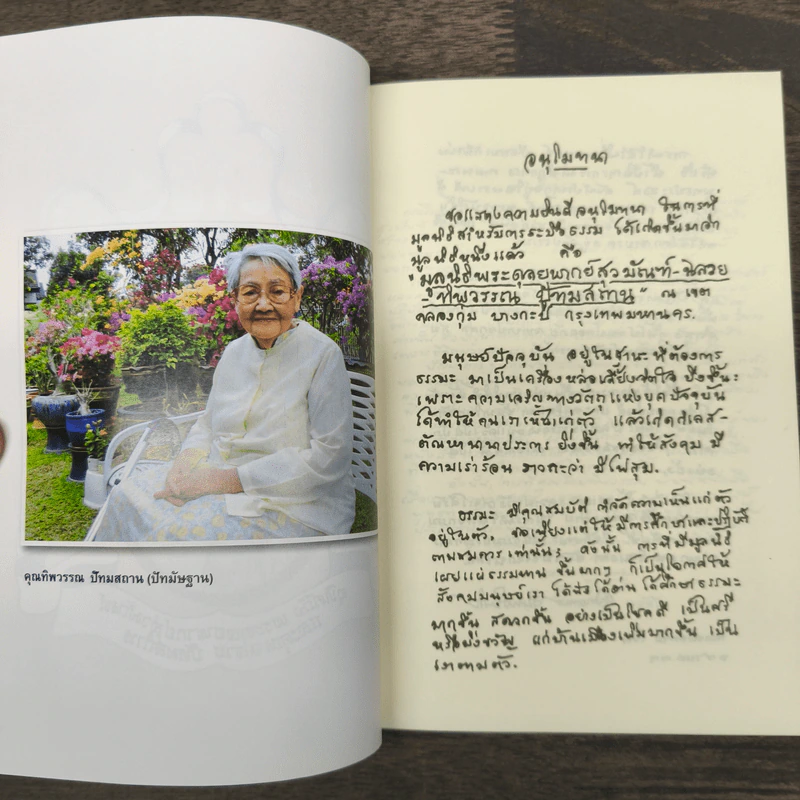 คุณทิพวรรณ ปัทมสถาน (ปัทมัษฐาน)
อนุโมทนา
ขอแสดงความยินดีอนุโมทนา ในการที่
มูลนิธิสำหรับการระบือธรรม ได้เกิดขึ้นมาอีก
มูลนิธิหนึ่งแล้ว คือ
"มูลนิธิพระดุลยพากย์สุวมัณฑ์-
ทิพวรรณ ปัทมสถาน" ณ เขต
คลองกุ่ม บางกะปิ กรุงเทพมหานคร.
มนุษย์ปัจจุบัน อยู่ในฐานะที่ต้องการ
ธรรมะ มาเป็นเครื่องหล่อเลี้ยงจิตใจ ยิ่งขึ้น;
เพราะความเจริญทางวัตถุแห่งยุคปัจจุบัน
ได้ทำให้คนเราเห็นแก่ตัว แล้วเกิดกิเลส-
ตัณหานานาประการ ยิ่งขึ้น ทำให้สังคม มี
ความเร่าร้อน ราวกะว่า มีไฟสุม.
ธรรมะ มีคุณสมบัติ กำจัดความเห็นแก่ตัว
อยู่ในตัว, ขอเพียงแต่ให้มีการศึกษาและปฏิบัติ
ตามสมควร เท่านั้น; ดังนั้น การที่มีมูลนิธิ
เผยแผ่ธรรมทาน ขึ้นมากๆ ก็เป็นโอกาสให้
สังคมมนุษย์เรา ได้ฟัง ได้อ่าน ได้ศึกษาธรรมะ
มากขึ้น สะดวกขึ้น อย่างเป็นโชคดี เป็นศรี
หรือมิ่งขวัญ แก่บ้านเมืองเพิ่มมากขึ้น เป็น
เงาตามตัว.